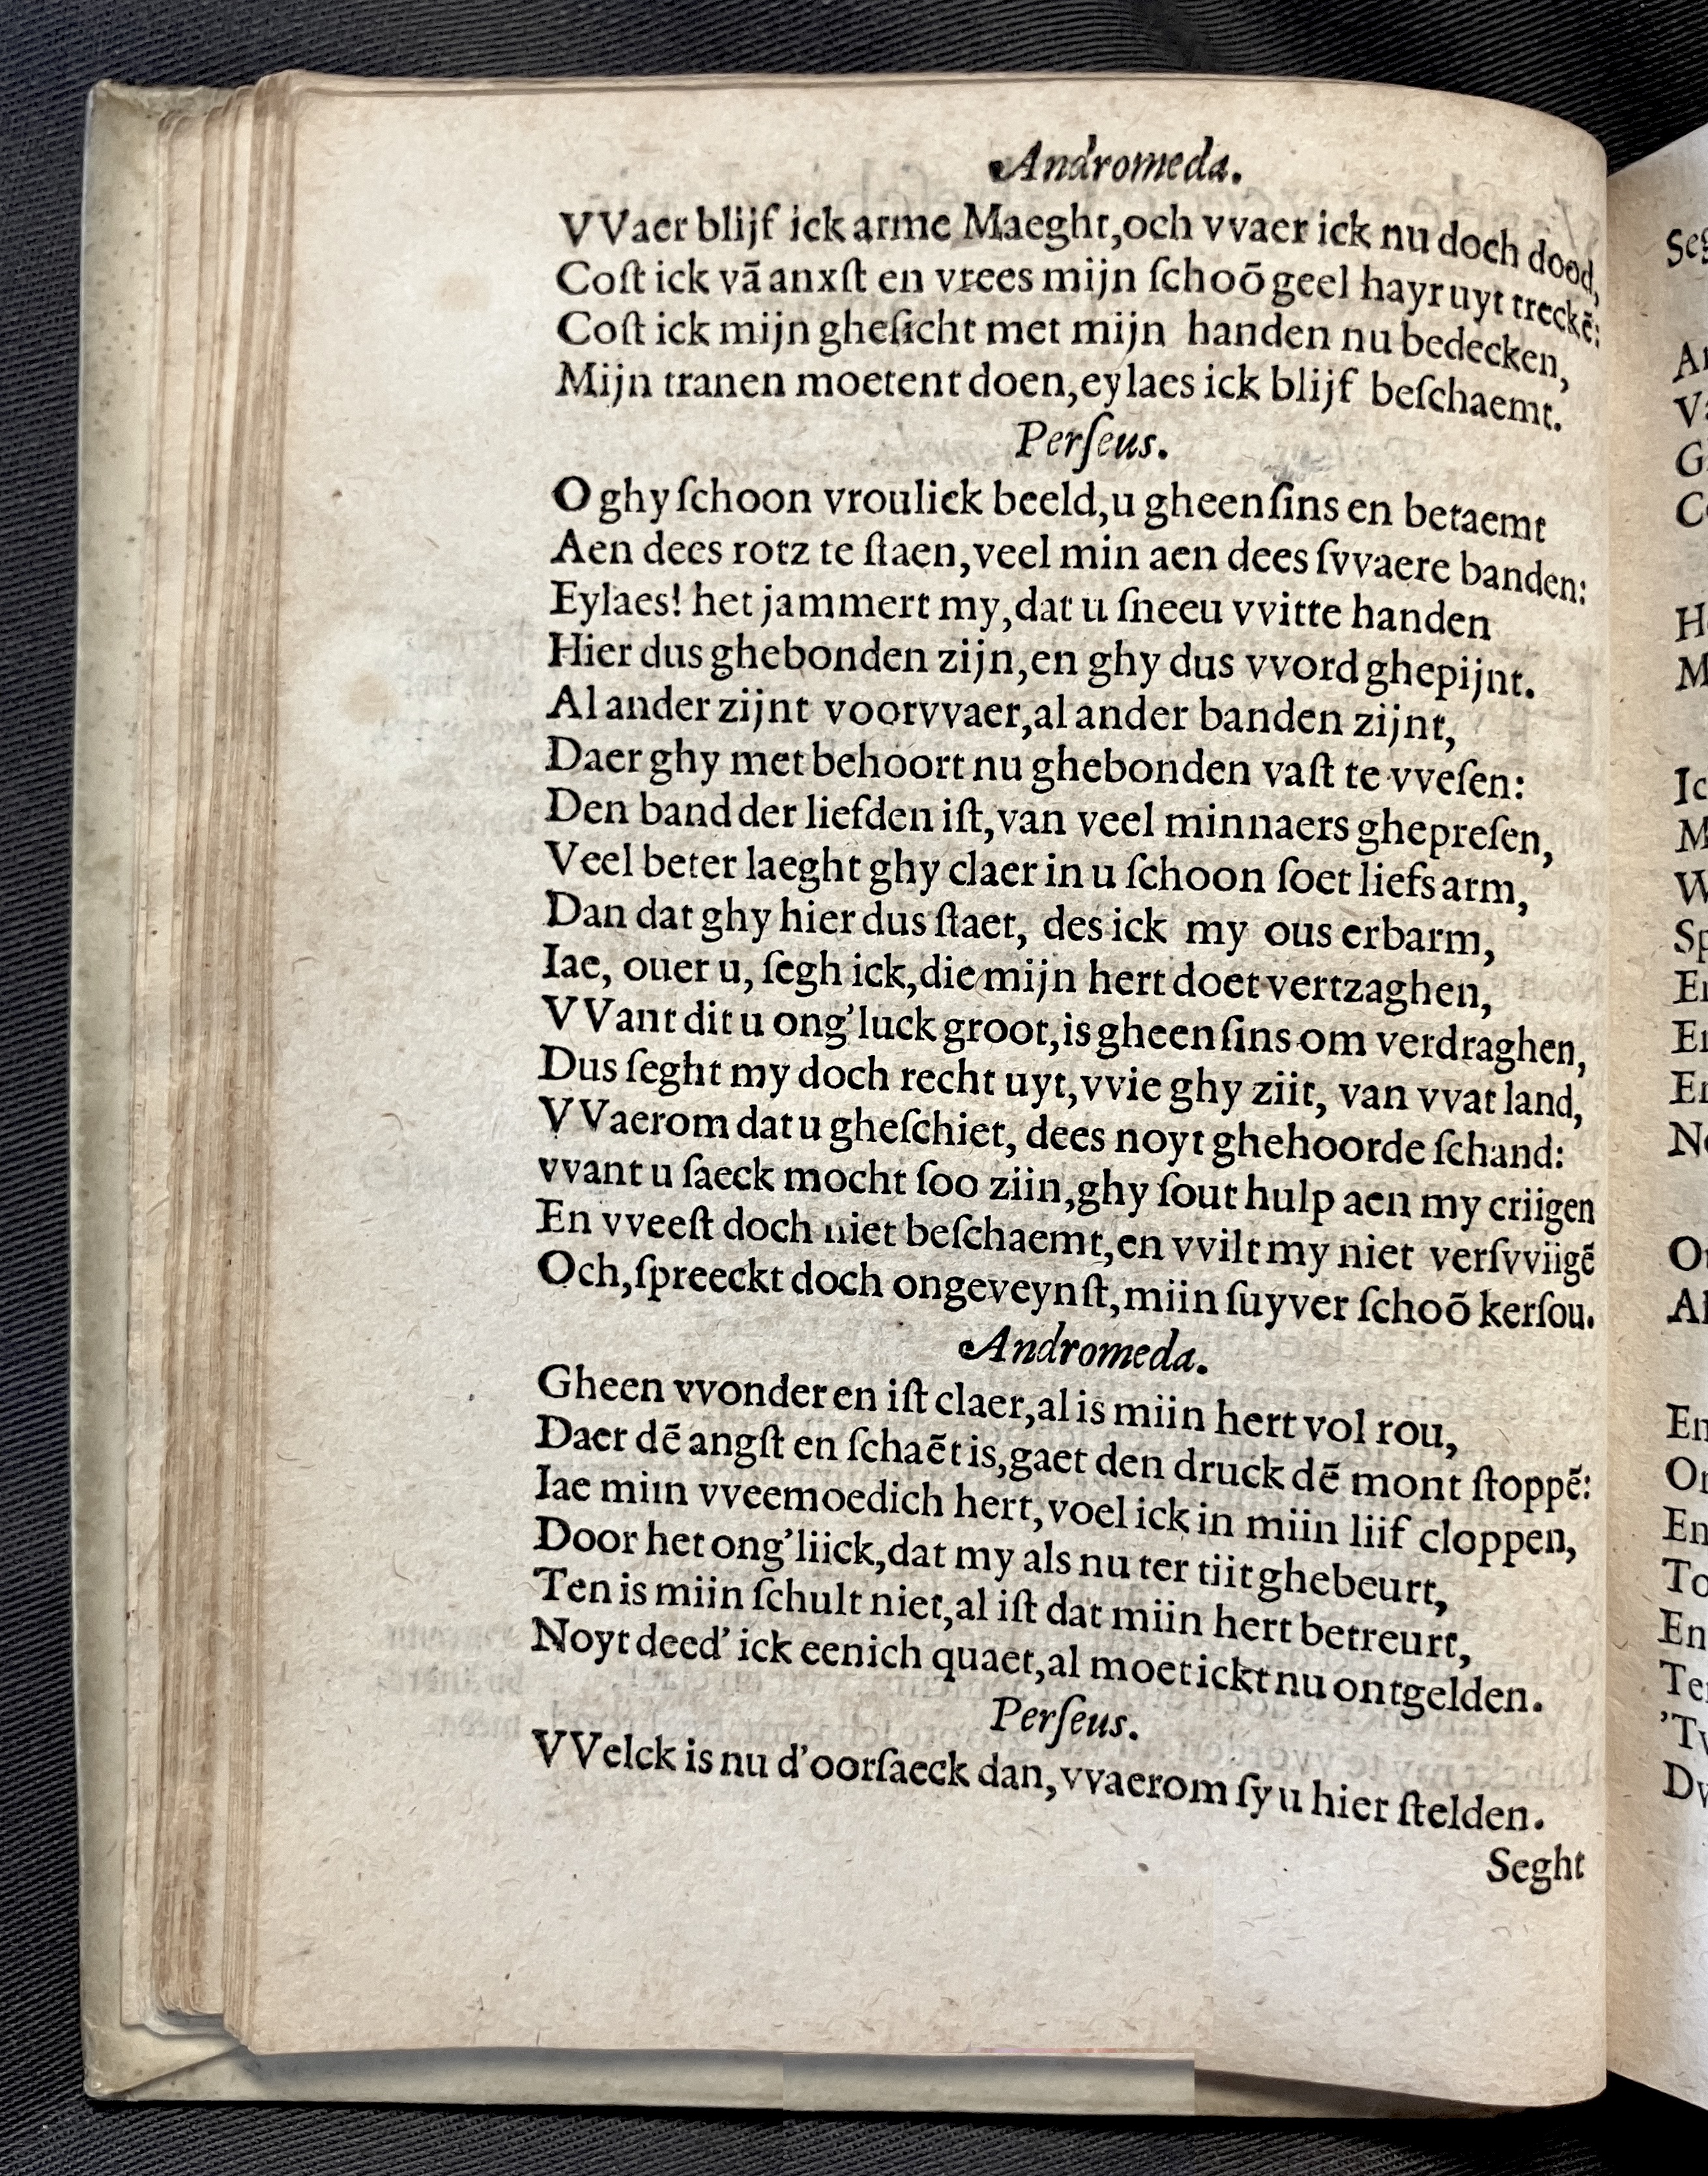 Andromeda.
VVaer blijf ick arme Maeght,och vvaer ick nu doch dood,
Coſt ick vā anxſt en vrees mijn ſchoō geel hayr uyt treckē:
Coſt ick mijn gheſicht met mijn handen nu bedecken,
Mijn tranen moetent doen,eylaes ick blijf beſchaemt.
Perſeus.
O ghy ſchoon vrouliek beeld,u gheenſins en betaemt
Aen dees rotz te ſtaen,veel min aen dees ſvvaere banden:
Eylaes! het jammert my,dat u ſneeu vvitte handen
Hier dus ghebonden zijn,en ghy dus vvord ghepijnt.
Al ander zijnt voorvvaer,al ander banden zijnt,
Daer ghy met behoort nu ghebonden vaſt te vveſen:
Den band der liefden iſt,van veel minnaers ghepreſen,
Veel beter laeght ghy claer in u ſchoon ſoet liefs arm,
Dan dat ghy hier dus ſtaet, des ick my ous erbarm,
Iae, ouer u, ſegh ick,die mijn hert doet vertzaghen,
VVant dit u ong'luck groot,is gheenſins om verdraghen,
Dus ſeght my doch recht uyt,vvie ghy ziit, van vvat land,
VVaerom dat u gheſchiet, dees noyt ghehoorde ſchand:
vvant u ſaeck mocht ſoo ziin,ghy ſout hulp aen my criigen
En vveeſt doch niet beſchaemt,en vvilt my niet verſvviigē
Och,ſpreeckt doch ongeveynſt,miin ſuyver ſchoō kerſou.
Andromeda.
Gheen vvonder en iſt claer,al is miin hert vol rou,
Daer dē angſt en ſchaēt is,gaet den druck dē mont ſtoppē:
Iae miin vveemoedich hert,voel ick in miin liif cloppen,
Door het ong'liick,dat my als nu ter tiit ghebeurt,
Ten is miin ſchult niet,al iſt dat miin hert betreurt,
Noyt deed' ick eenich quaet,al moet ickt nu ontgelden.
Perſeus.
VVelck is nu d'oorſaeck dan,vvaerom ſy u hier ſtelden.
Seght